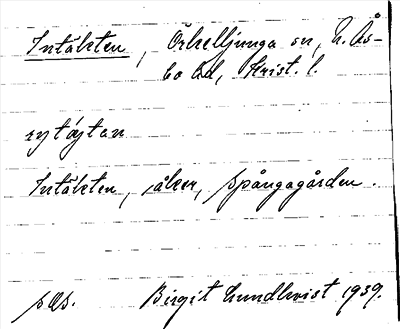 Intäkten, Örkelljunga sn, N. Ås-
bo hd, Krist. l.
Intäkten, åker, Spångagården.
pas. Birgit Lundkvist 1939.